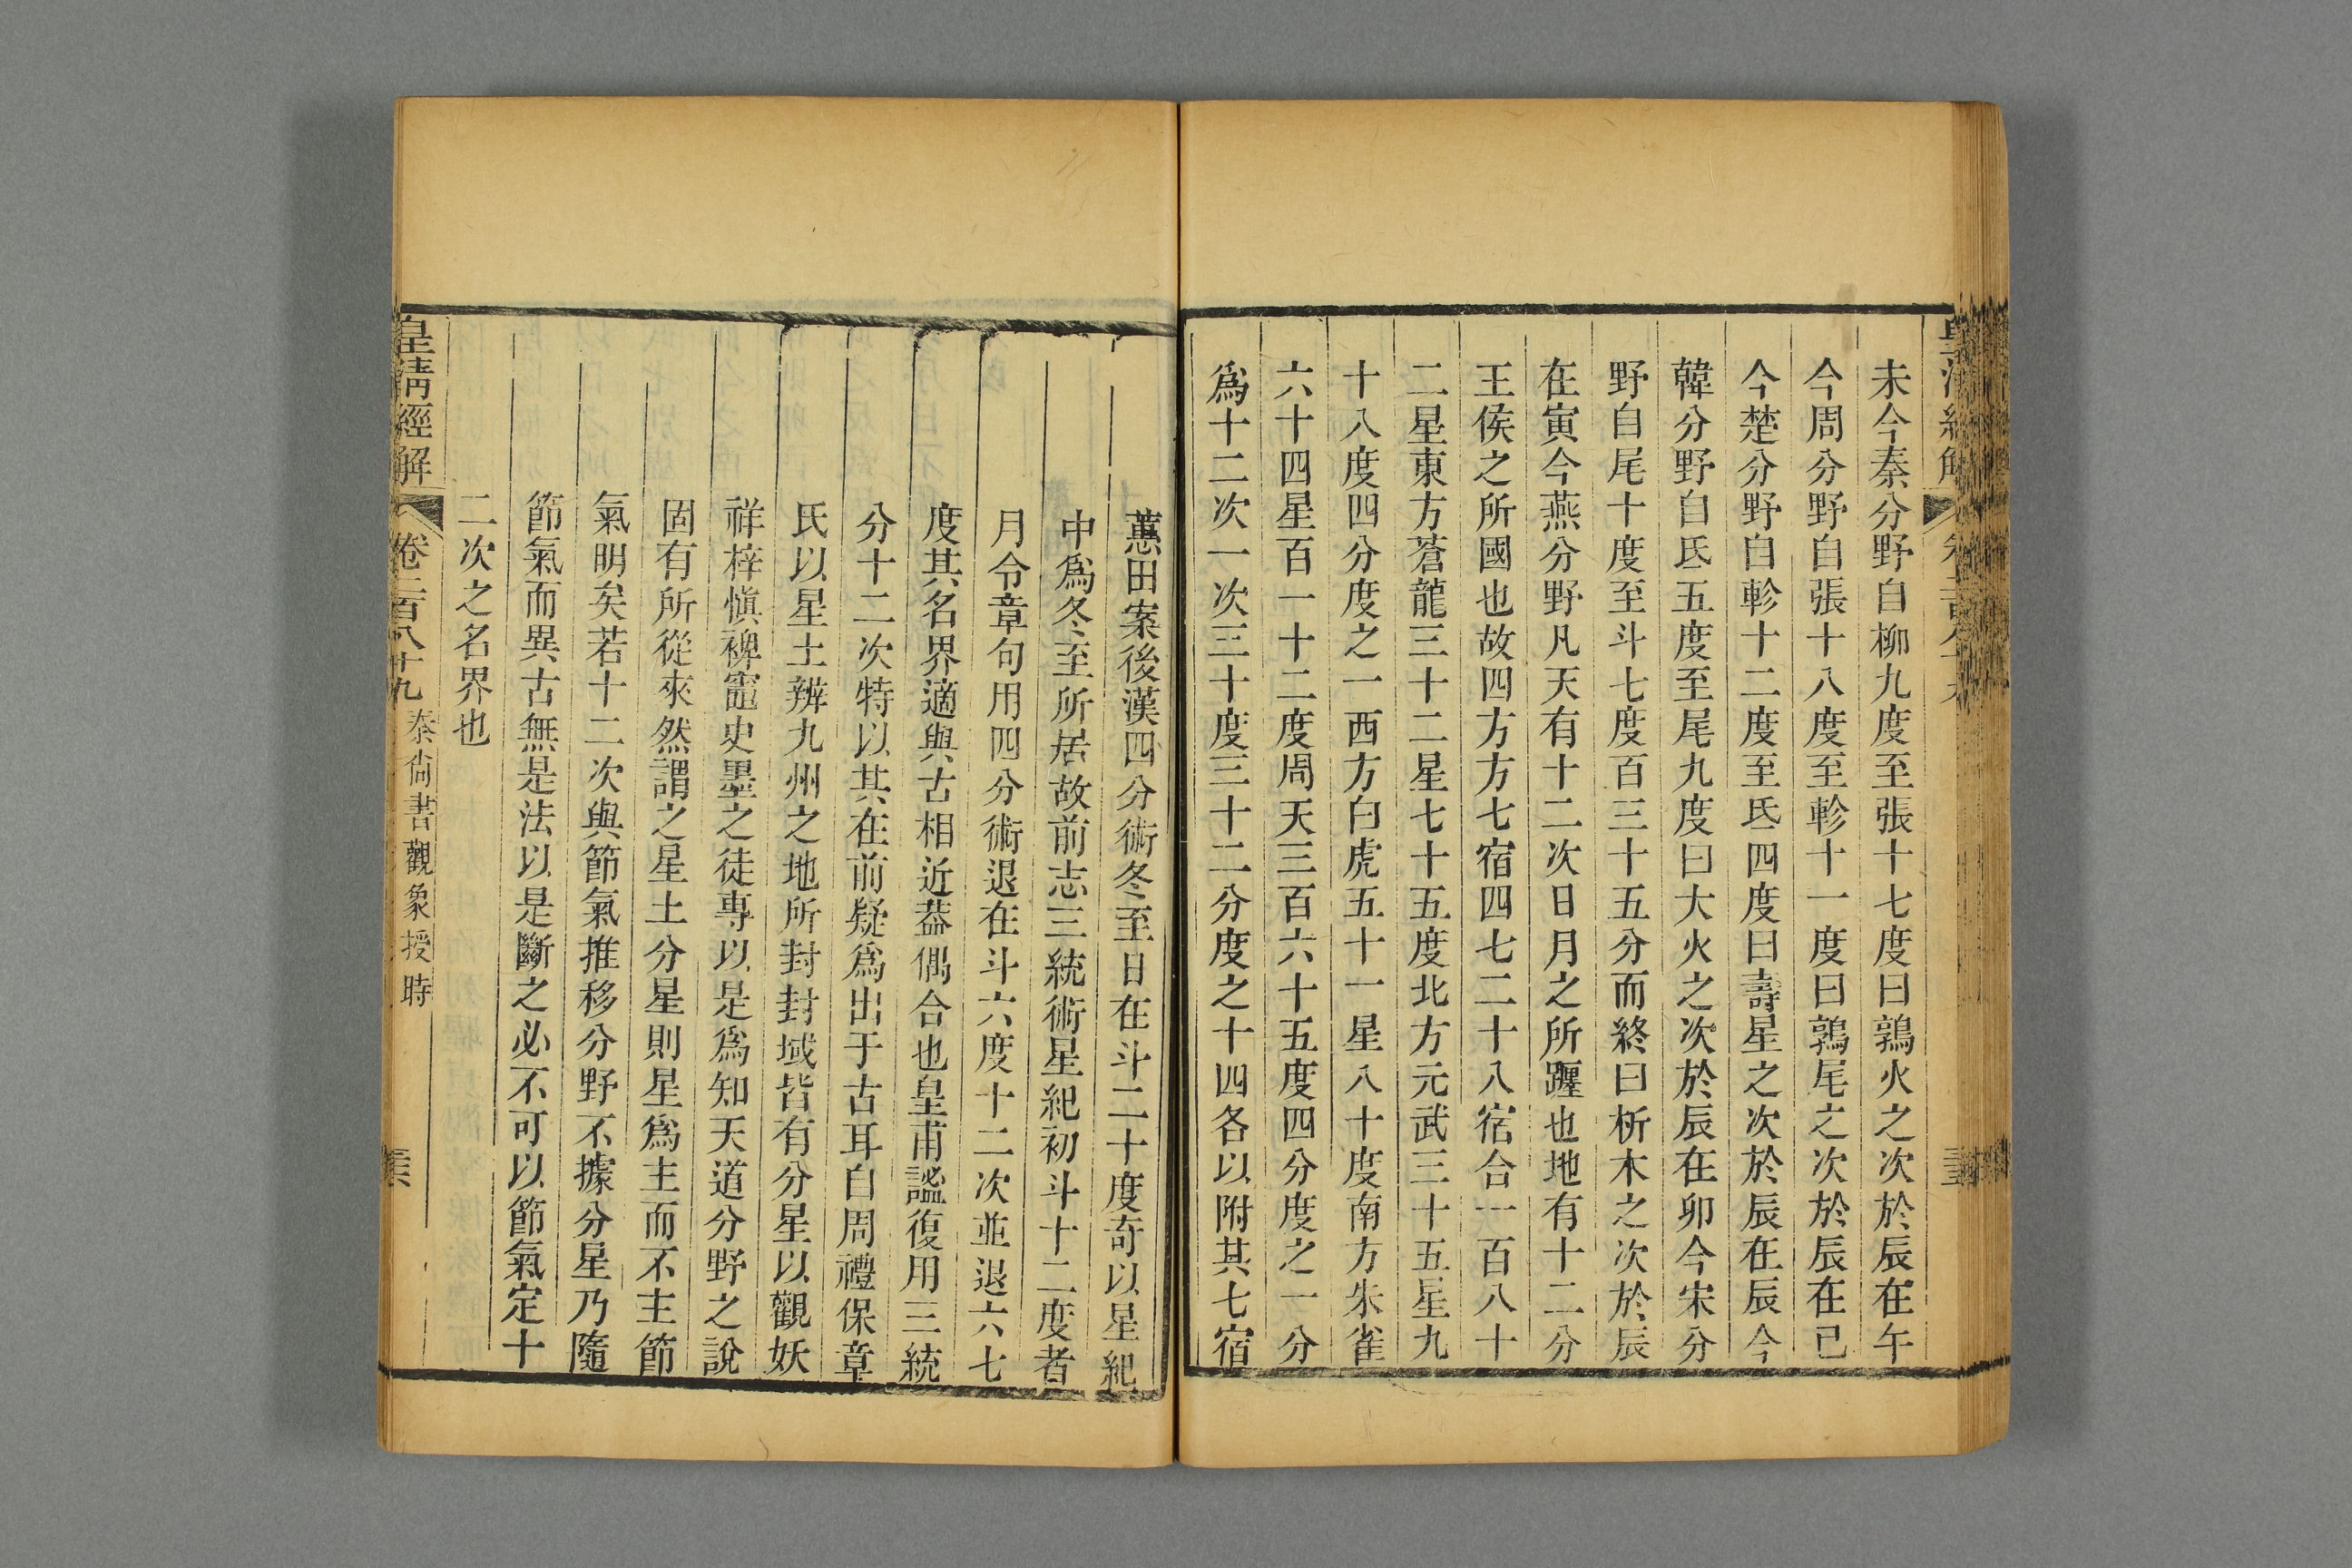 未今秦分野自柳九度至張十七度曰鶉火之次於辰在午
今周分野自張十八度至軫十一度曰鶉尾之次於辰在已
今楚分野自軫十二度至氐四度曰壽星之次於辰在辰今
韓分野自氐五度至尾九度曰大火之次於辰在卯今宋分
野自尾十度至斗七度百三十五分而終曰析木之次於辰
在寅今燕分野凡天有十二次日月之所躔也地有十二分
王侯之所國也故四方方七宿四七二十八宿合一百八十
二星東方蒼龍三十二星七十五度北方元武三十五星九
十八度四分度之一西方白虎五十一星八十度南方朱雀
六十四星百一十二度周天三百六十五度四分度之一分
爲十二次一次三十度三十二分度之十四各以附其七宿
蕙田案後漢四分術冬至日在斗二十度奇以星紀
中爲冬至所居故前志三統術星紀初斗十二度者
月令章句用四分術退在斗六度十二次並退六七
度其名界適與古相近葢偶合也皇甫謐復用三統
分十二次特以其在前疑爲出于古耳自周禮保章
氏以星土辨九州之地所封封域皆有分星以觀妖
祥梓愼裨竈史墨之徒專以是爲知天道分野之說
固有所從來然謂之星土分星則星爲主而不主節
氣明矣若十二次與節氣推移分野不據分星乃隨
節氣而異古無是法以是斷之必不可以節氣定十
二次之名界也
皇清經解
卷二百八十九
秦尙書觀象授時